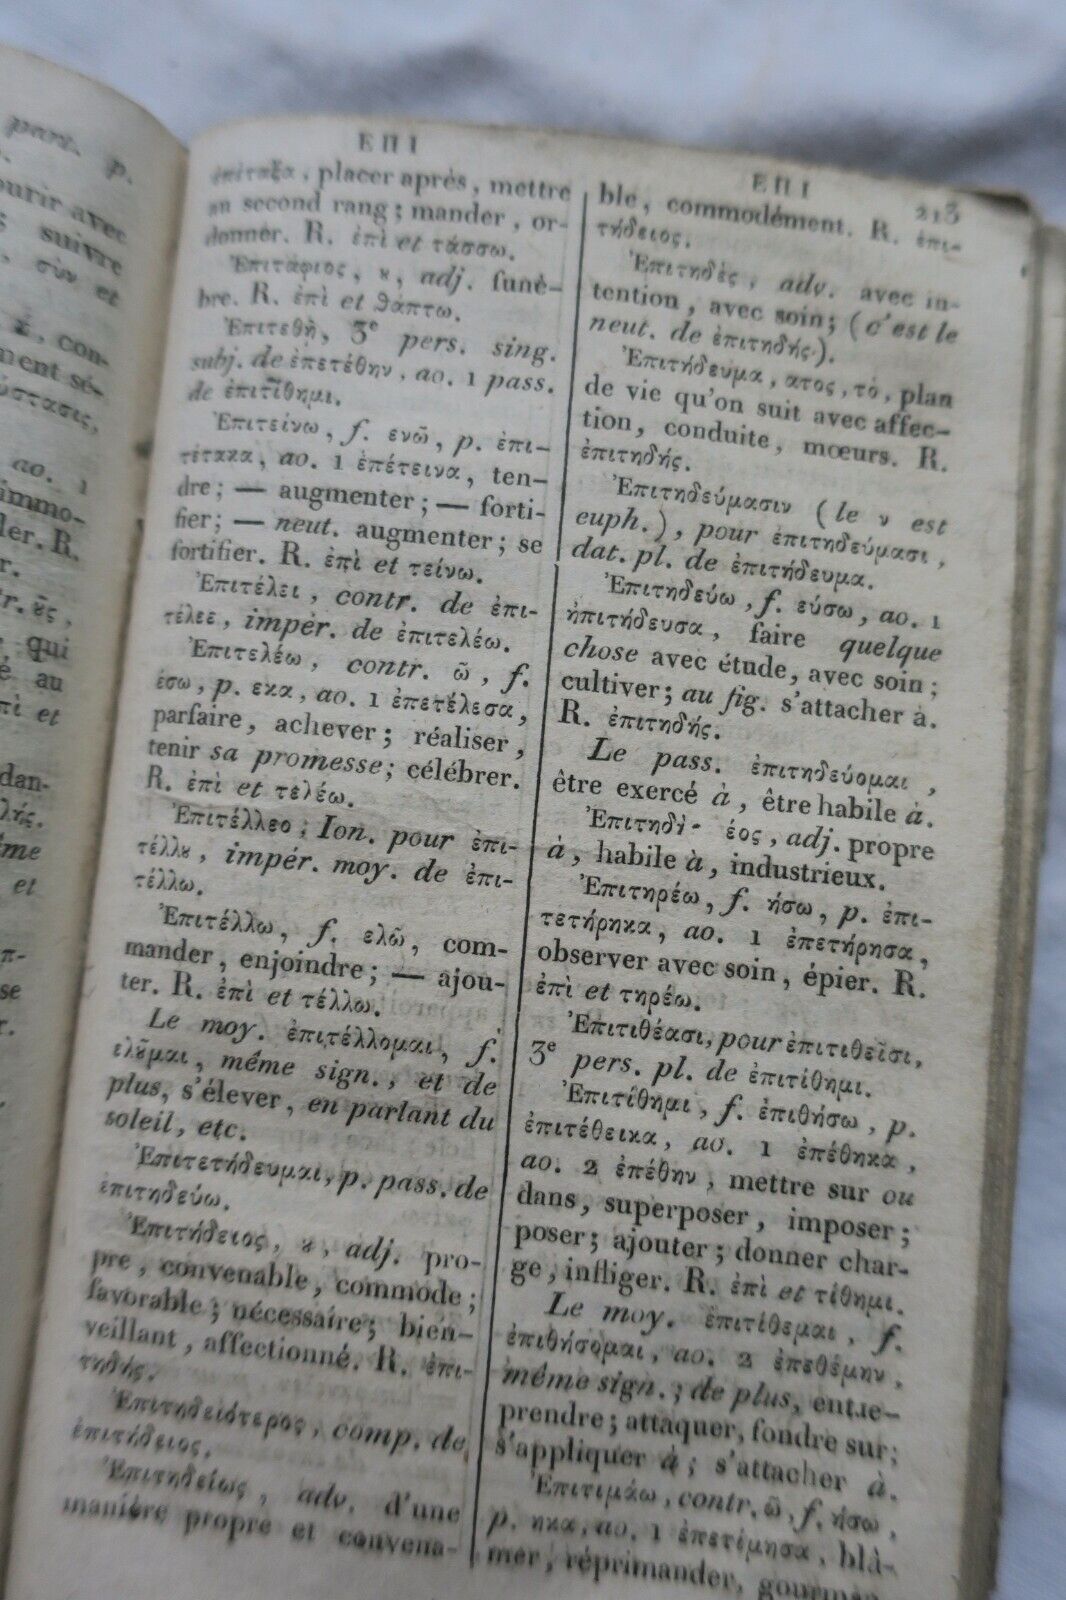 part. p.
ourir avec
suivre
σὺν et
con-
ment sé-
ύστασις,
ao. 1
immo-
ler. R.
qui
é au
πὶ et
dan-
λής.
me
et
se
ΕΠΙ
ἐπίταξα, placer après, mettre
au second rang; mander, or-
donner. R. ἐπὶ et τάσσω.
Ἐπιτάφιος, ȣ, adj. funè-
bre. R. ἐπὶ et θάπτω.
Ἐπιτεθῆ, 3e pers. sing.
subj. de ἐπετέθην, ao. 1 pass.
de ἐπιτίθημι.
Ἐπιτείνω, f. ενῶ, p. ἐπι-
τέτακα, ao. 1 ἐπέτεινα, ten-
dre; — augmenter; — forti-
fier; — neut. augmenter; se
fortifier. R. ἐπὶ et τείνω.
Ἐπιτέλει, contr. de ἐπι-
τέλεε, impér. de ἐπιτελέω.
Ἐπιτελέω, contr. ῶ, f.
έσω, p. εκα, ao. 1 ἐπετέλεσα,
parfaire, achever; réaliser,
tenir sa promesse; célébrer.
R. ἐπὶ et τελέω.
Ἐπιτέλλεο; Ion. pour ἐπι-
τέλλȣ, impér. moy. de ἐπι-
τέλλω.
Ἐπιτέλλω, f. ελῶ, com-
mander, enjoindre; — ajou-
ter. R. ἐπὶ et τέλλω.
Le moy. ἐπιτέλλομαι, f.
ελȣ͂μαι, même sign., et de
plus, s'élever, en parlant du
soleil, etc.
Ἐπιτετήδευμαι, p. pass. de
ἐπιτηδεύω.
Ἐπιτήδειος, ȣ, adj. pro-
pre, convenable, commode;
favorable; nécessaire; bien-
veillant, affectionné. R. ἐπι-
τηδής.
Ἐπιτηδειότερος, comp. de
ἐπιτήδειος.
Ἐπιτηδείως, adv. d'une
manière propre et convena-
ΕΠΙ 213
ble, commodément. R. ἐπι-
τήδειος.
Ἐπιτηδὲς, adv. avec in-
tention, avec soin; (c'est le
neut. de ἐπιτηδής).
Ἐπιτήδευμα, ατος, τὸ, plan
de vie qu'on suit avec affec-
tion, conduite, mœurs. R.
ἐπιτηδής.
Ἐπιτηδεύμασιν (le ν est
euph.), pour ἐπιτηδεύμασι,
dat. pl. de ἐπιτήδευμα.
Ἐπιτηδεύω, f. εύσω, ao. 1
ἠπιτήδευσα, faire quelque
chose avec étude, avec soin;
cultiver; au fig. s'attacher à.
R. ἐπιτηδής.
Le pass. ἐπιτηδεύομαι,
être exercé à, être habile à.
Ἐπιτηδὴς έος, adj. propre
à, habile à, industrieux.
Ἐπιτηρέω, f. ήσω, p. ἐπι-
τετήρηκα, ao. 1 ἐπετήρησα,
observer avec soin, épier. R.
ἐπὶ et τηρέω.
Ἐπιτιθέασι, pour ἐπιτιθεῖσι,
3e pers. pl. de ἐπιτίθημι.
Ἐπιτίθημι, f. ἐπιθήσω, p.
ἐπιτέθεικα, ao. 1 ἐπέθηκα,
ao. 2 ἐπέθην, mettre sur ou
dans, superposer, imposer;
poser; ajouter; donner char-
ge, infliger. R. ἐπὶ et τίθημι.
Le moy. ἐπιτίθεμαι, f.
ἐπιθήσομαι, ao. 2 ἐπεθέμην,
même sign.; de plus, entre-
prendre; attaquer, fondre sur;
s'appliquer à; s'attacher à.
Ἐπιτιμάω, contr. ῶ, f. ήσω,
p. ηκα, ao. 1 ἐπετίμησα, blâ-
mer, réprimander, gourman-